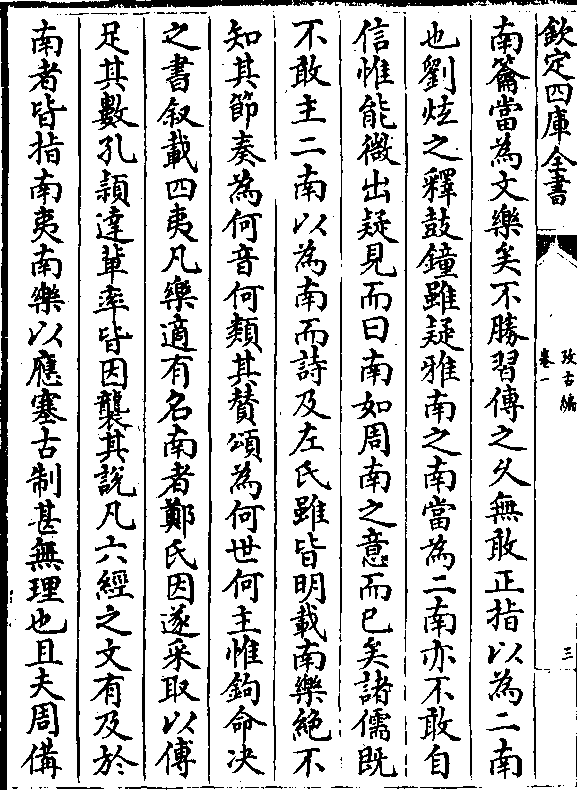 欽定四庫全書
攷古編
卷一
三
南籥當為文樂矣不勝習傳之久無敢正指以為二南
也劉炫之釋鼓鐘雖疑雅南之南當為二南亦不敢自
信惟能微出疑見而曰南如周南之意而已矣諸儒既
不敢主二南以為南而詩及左氏雖皆明載南樂絶不
知其節奏為何音何類其贊頌為何世何主惟鉤命决
之書叙載四夷凡樂適有名南者鄭氏因遂采取以傅
足其數孔頴達軰率皆因襲其說凡六經之文有及於
南者皆指南夷南樂以應塞古制甚無理也且夫周備